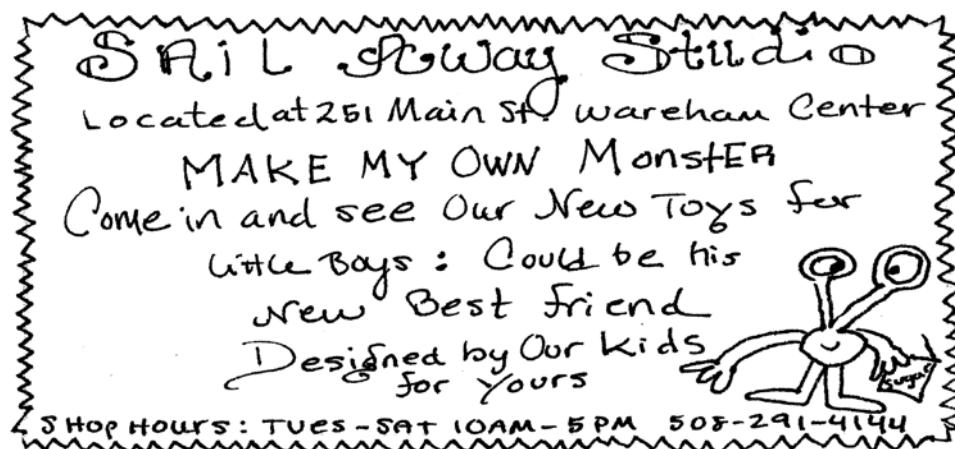 SAiL AWay Studio
Located at 251 Main St. Wareham Center
MAKE MY OWN MonstER
Come in and see Our New Toys for
Little Boys: Could be his
New Best friend
Designed by Our Kids
for Yours
Sugar
SHop HOurs: TUes-SAt 10AM-5PM 508-291-4144